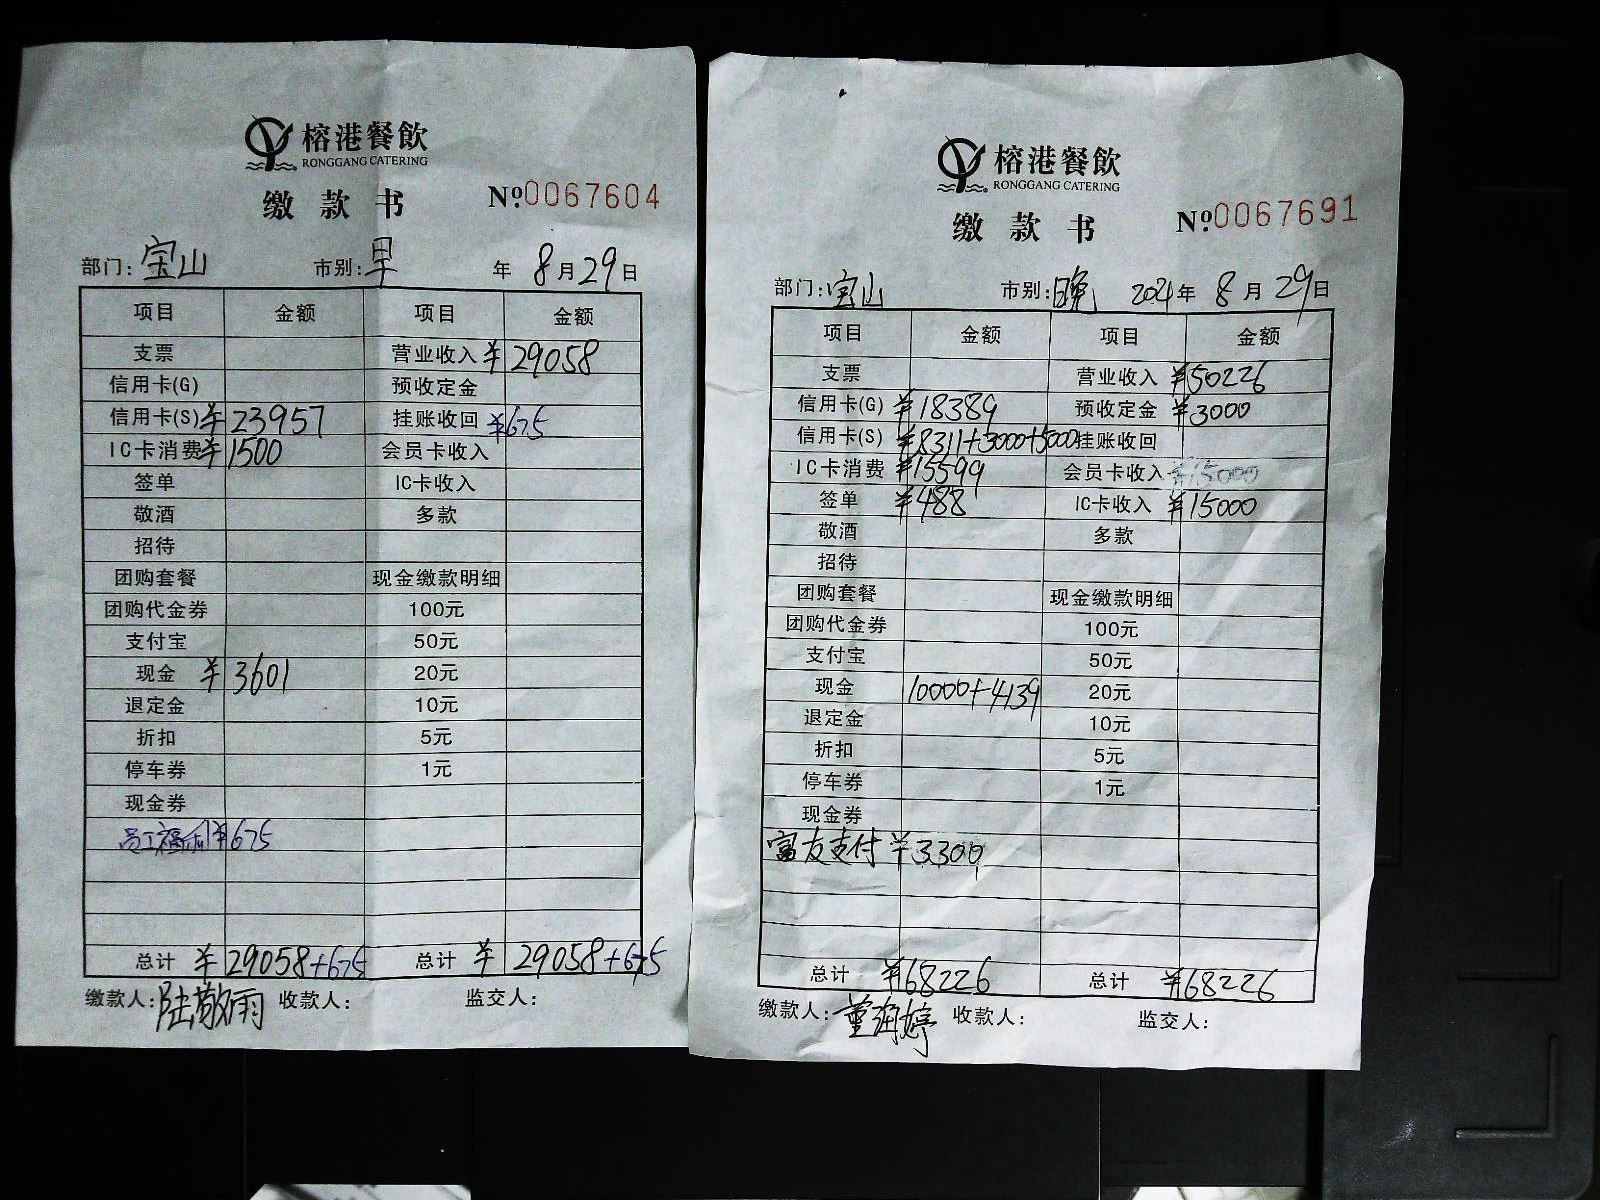 榕港餐飲
RONGGANG CATERING
缴款书 №:0067604
部门:宝山 市别:早 年 8月29日
项目 金额 项目 金额
支票 营业收入 ¥29058
信用卡(G) 预收定金
信用卡(S) ¥23957 挂账收回 ¥675
IC卡消费 ¥1500 会员卡收入
签单 IC卡收入
敬酒 多款
招待
团购套餐 现金缴款明细
团购代金券 100元
支付宝 50元
现金 ¥3601 20元
退定金 10元
折扣 5元
停车券 1元
现金券
员工福利 ¥675
总计 ¥29058+675 总计 ¥29058+675
缴款人:陆敬雨 收款人: 监交人:
榕港餐飲
RONGGANG CATERING
缴款书 №:0067691
部门:宝山 市别:晚 2021年 8月29日
项目 金额 项目 金额
支票 营业收入 ¥50226
信用卡(G) ¥18389 预收定金 ¥3000
信用卡(S) ¥8311+3000+5000 挂账收回
IC卡消费 ¥15599 会员卡收入 ¥15000
签单 ¥488 IC卡收入 ¥15000
敬酒 多款
招待
团购套餐 现金缴款明细
团购代金券 100元
支付宝 50元
现金 10000+4139 20元
退定金 10元
折扣 5元
停车券 1元
现金券
富友支付 ¥3300
总计 ¥68226 总计 ¥68226
缴款人:董海婷 收款人: 监交人: